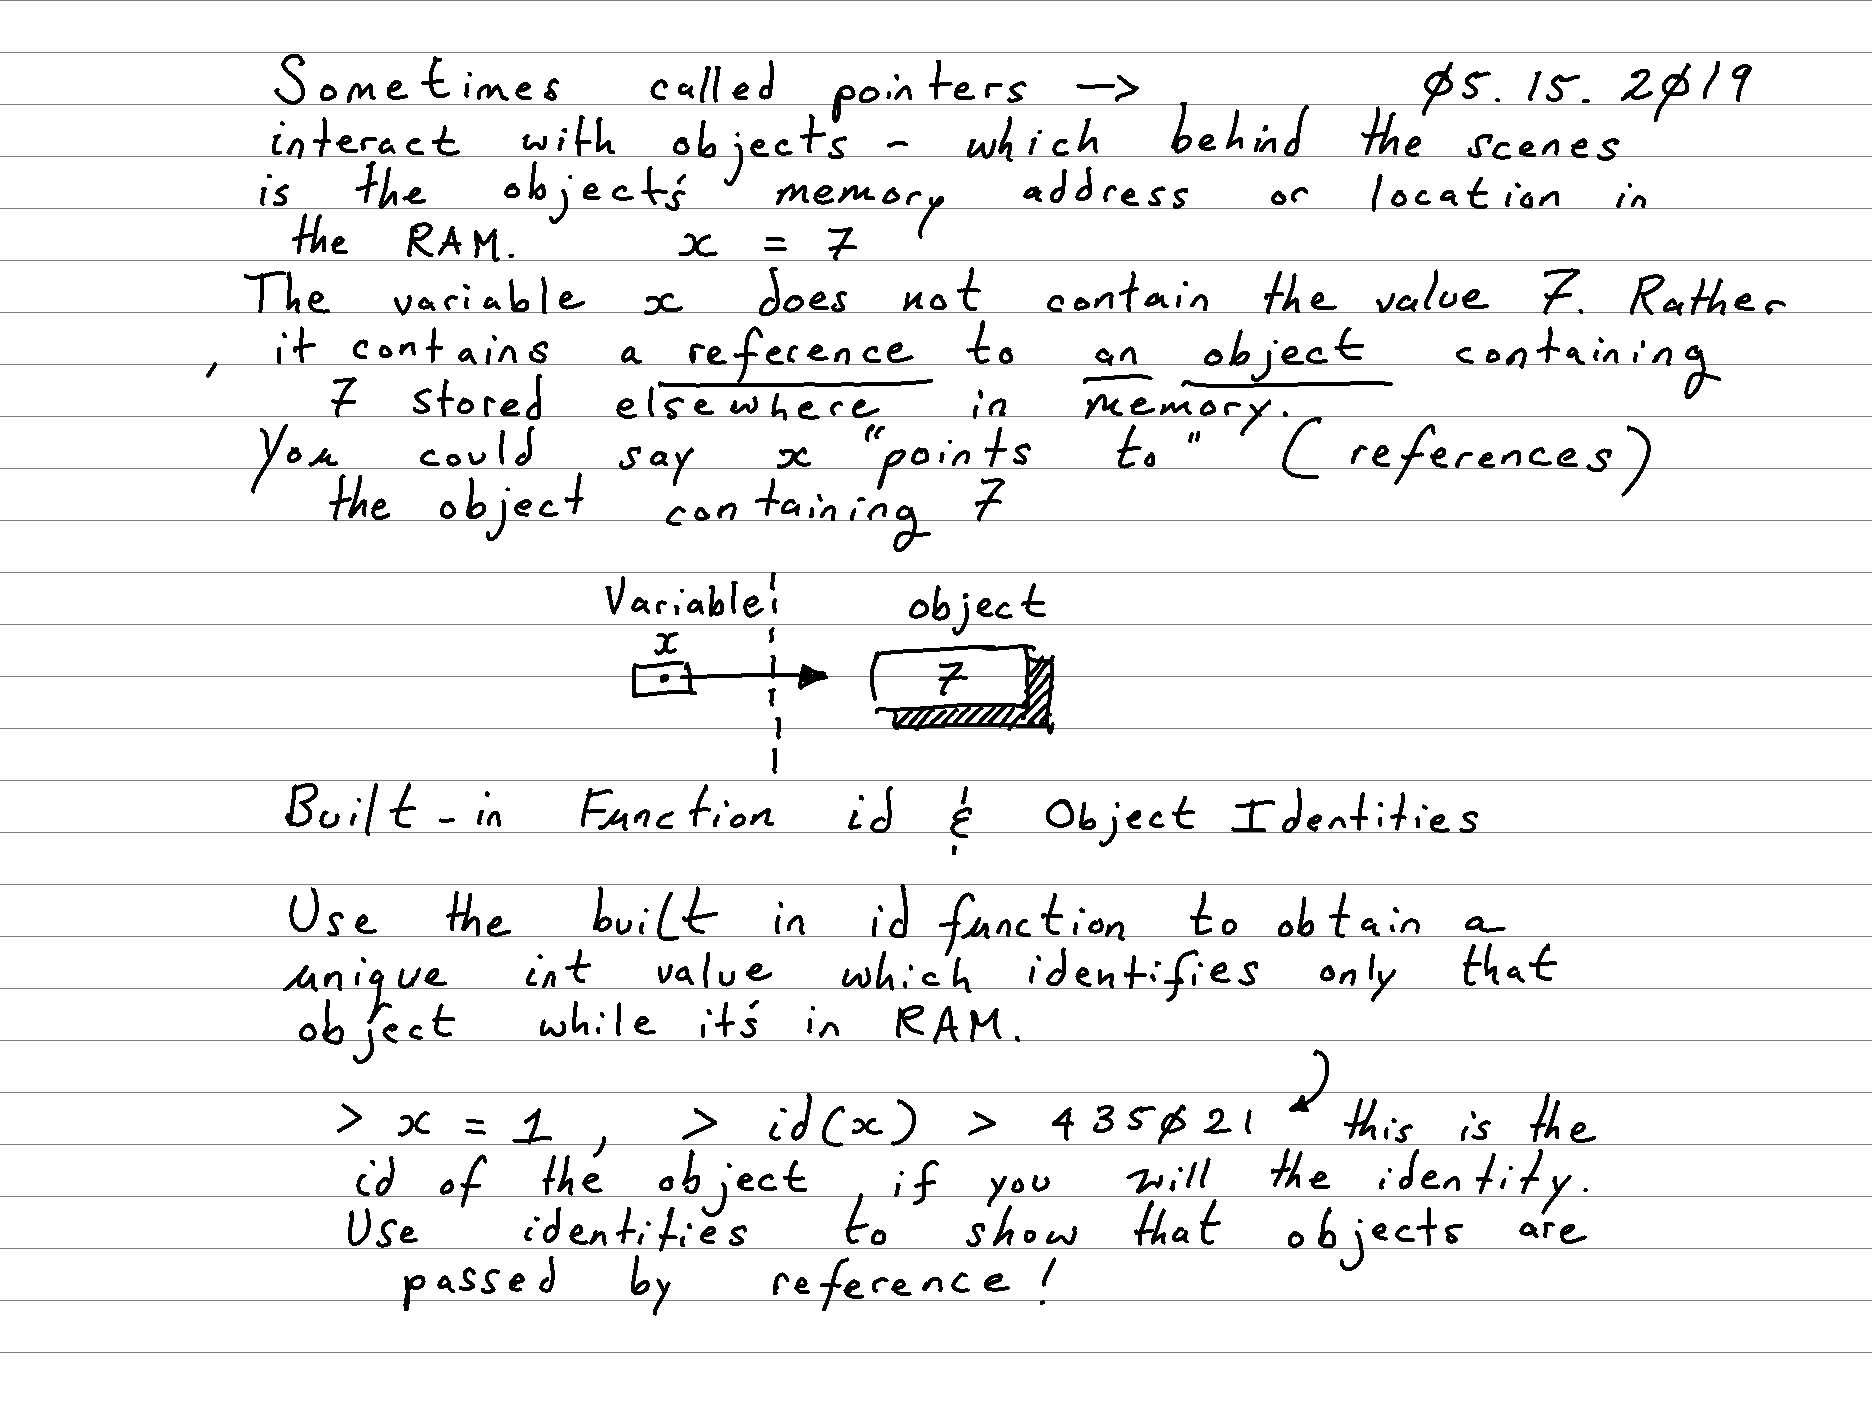 Sometimes called pointers → 05.15.2019
interact with objects - which behind the scenes
is the object's memory address or location in
the RAM. x = 7
The variable x does not contain the value 7. Rather
, it contains a reference to an object containing
7 stored elsewhere in memory.
You could say x "points to" (references)
the object containing 7
Variable object
x
7
Built-in Function id & Object Identities
Use the built in id function to obtain a
unique int value which identifies only that
object while it's in RAM.
> x = 1, > id(x) > 435021 this is the
id of the object, if you will the identity.
Use identities to show that objects are
passed by reference!